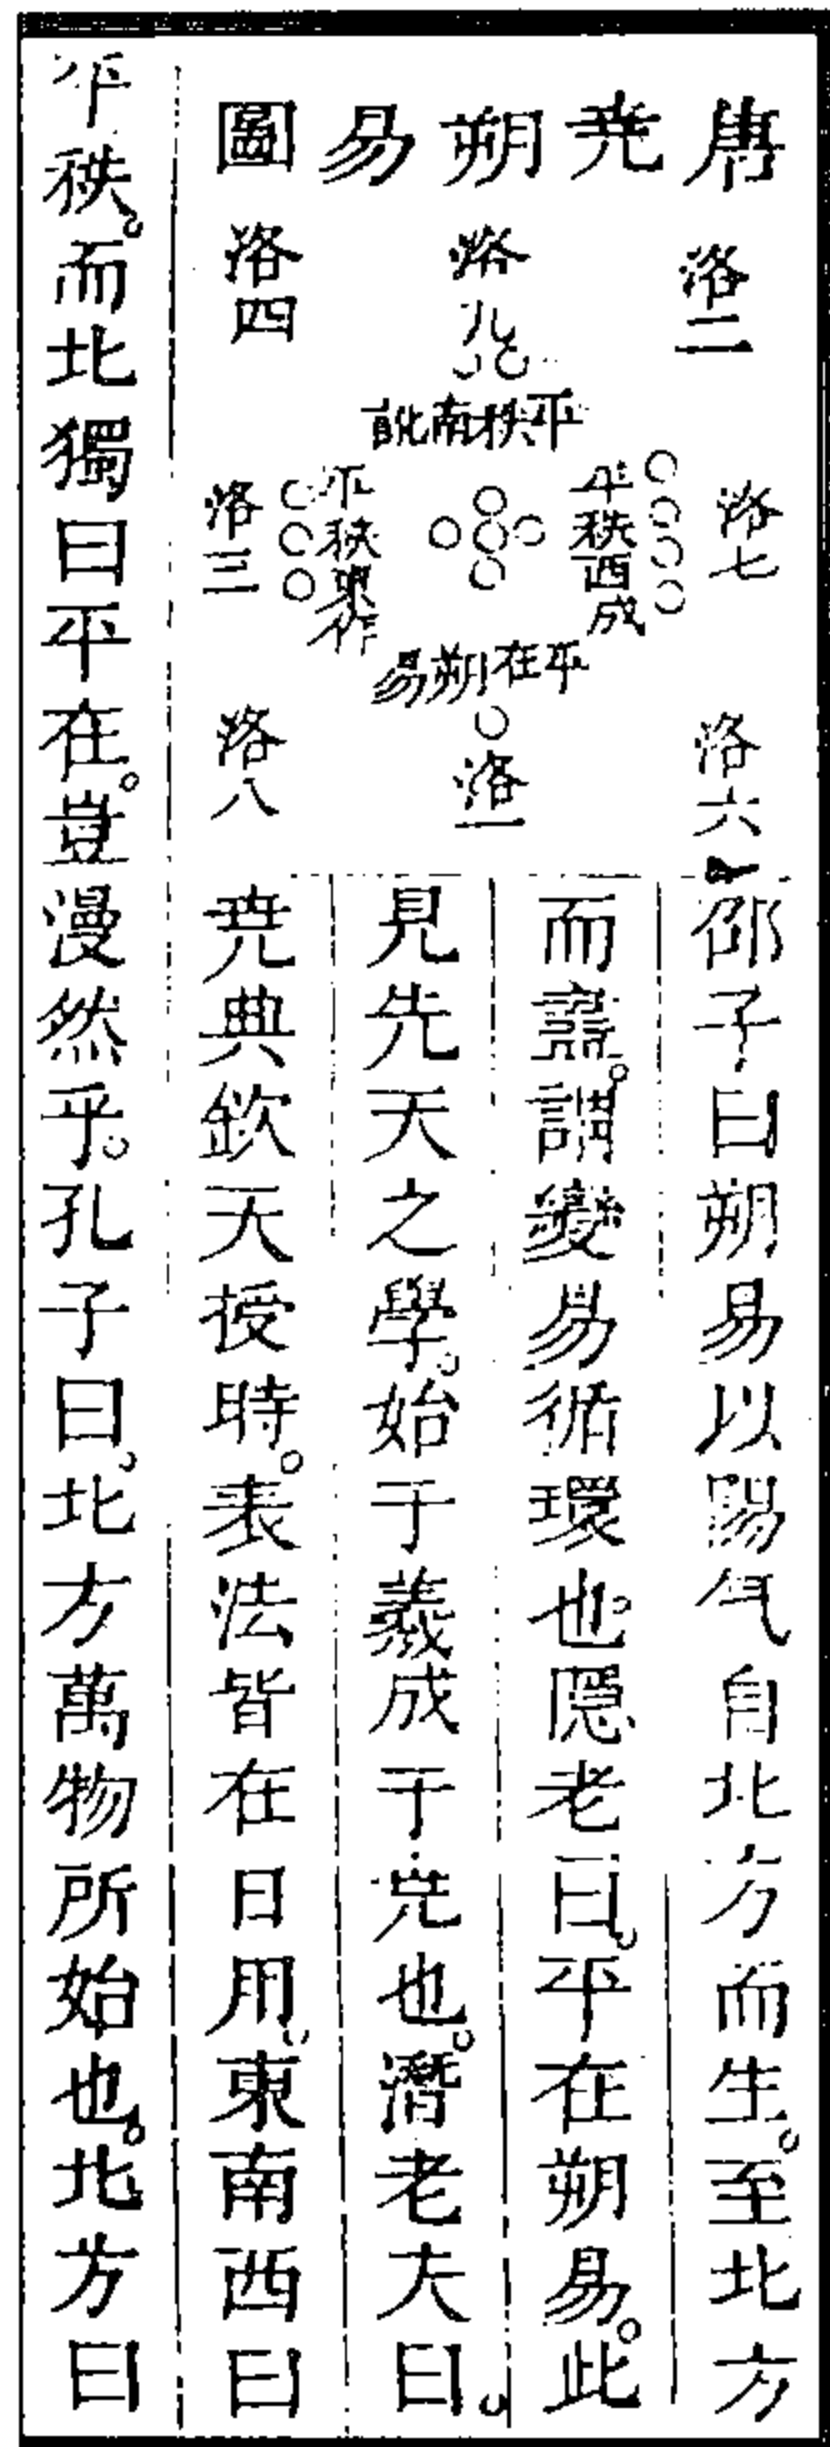 唐堯朔易圖
洛二
洛九
洛四
平秩南訛
洛七
平秩西成
平秩東作
洛三
平在朔易
洛六
洛一
洛八
邵子曰朔易以陽气自北方而生。至北方
而盡。謂變易循環也。隱老曰。平在朔易。此
見先天之學。始于羲成于堯也。潛老夫曰。
堯典欽天授時。表法皆在日用。東南西曰
平秩。而北獨曰平在。豈漫然乎。孔子曰。北方萬物所始也。北方曰